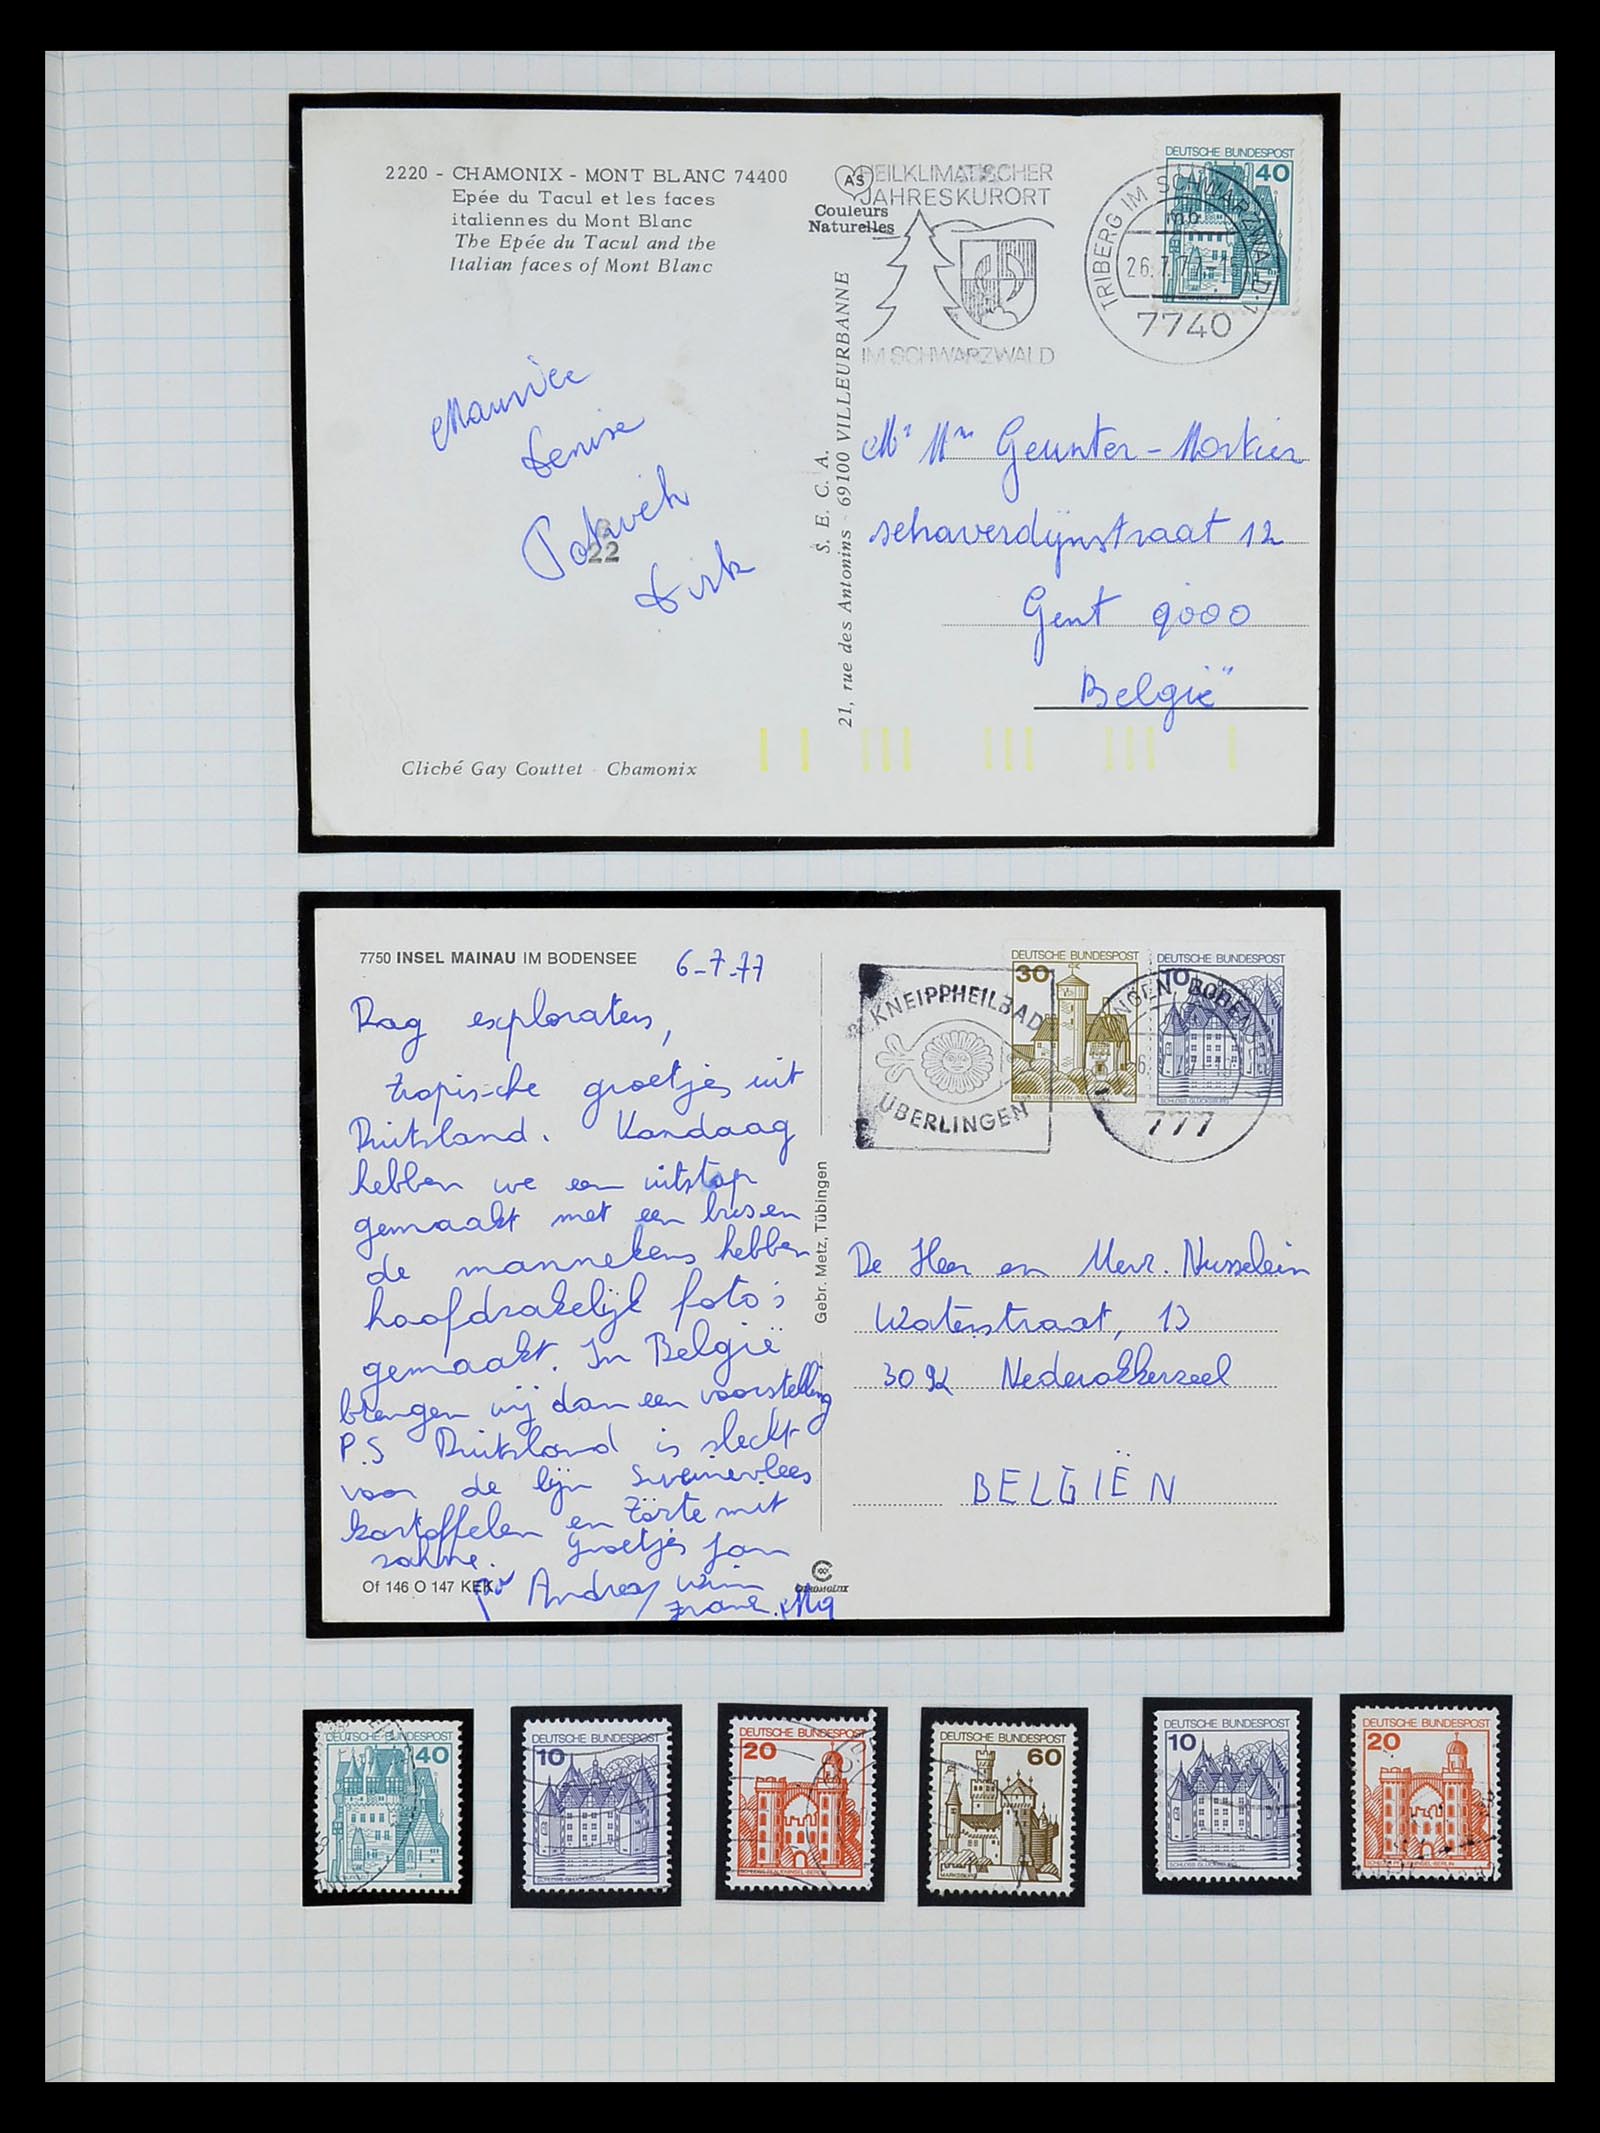 2220 - CHAMONIX - MONT BLANC 74400
Epée du Tacul et les faces
italiennes du Mont Blanc
The Epée du Tacul and the
Italian faces of Mont Blanc
AS
Couleurs
Naturelles
HEILKLIMATISCHER
JAHRESKURORT
IM SCHWARZWALD
DEUTSCHE BUNDESPOST
40
TRIBERG IM SCHWARZWALD 1
mb
26.7.77
7740
S. E. C. A.
21, rue des Antonins - 69100 VILLEURBANNE
Denise
22
Dirk
Mr Mme Geunter - Mortier
schaverdijnstraat 12
Gent 9000
België
Cliché Gay Couttet - Chamonix
7750 INSEL MAINAU IM BODENSEE
6-7-77
Dag exploraters,
tropische groetjes uit
Duitsland. Vandaag
hebben we een uitstap
gemaakt met een bus en
de mannekens hebben
hoofdzakelijk foto's
gemaakt. In België
brengen wij dan een voorstelling
P.S Duitsland is slecht
voor de lijn
kartoffelen en Törte mit
sahne. Groetjes Jan
Andrea Wim
Of 146 O 147 KEK
Gebr. Metz, Tübingen
KNEIPPHEILBAD
ÜBERLINGEN
DEUTSCHE BUNDESPOST
30
DEUTSCHE BUNDESPOST
10
SCHLOSS GLÜCKSBURG
777
De Heer en Mevr. Nusselein
Waterstraat, 13
3092 Nederokkerzeel
BELGIËN
DEUTSCHE BUNDESPOST
40
DEUTSCHE BUNDESPOST
10
SCHLOSS GLÜCKSBURG
DEUTSCHE BUNDESPOST
20
SCHLOSS PFAUENINSEL-BERLIN
DEUTSCHE BUNDESPOST
60
MARKSBURG
DEUTSCHE BUNDESPOST
10
SCHLOSS GLÜCKSBURG
DEUTSCHE BUNDESPOST
20
SCHLOSS PFAUENINSEL-BERLIN